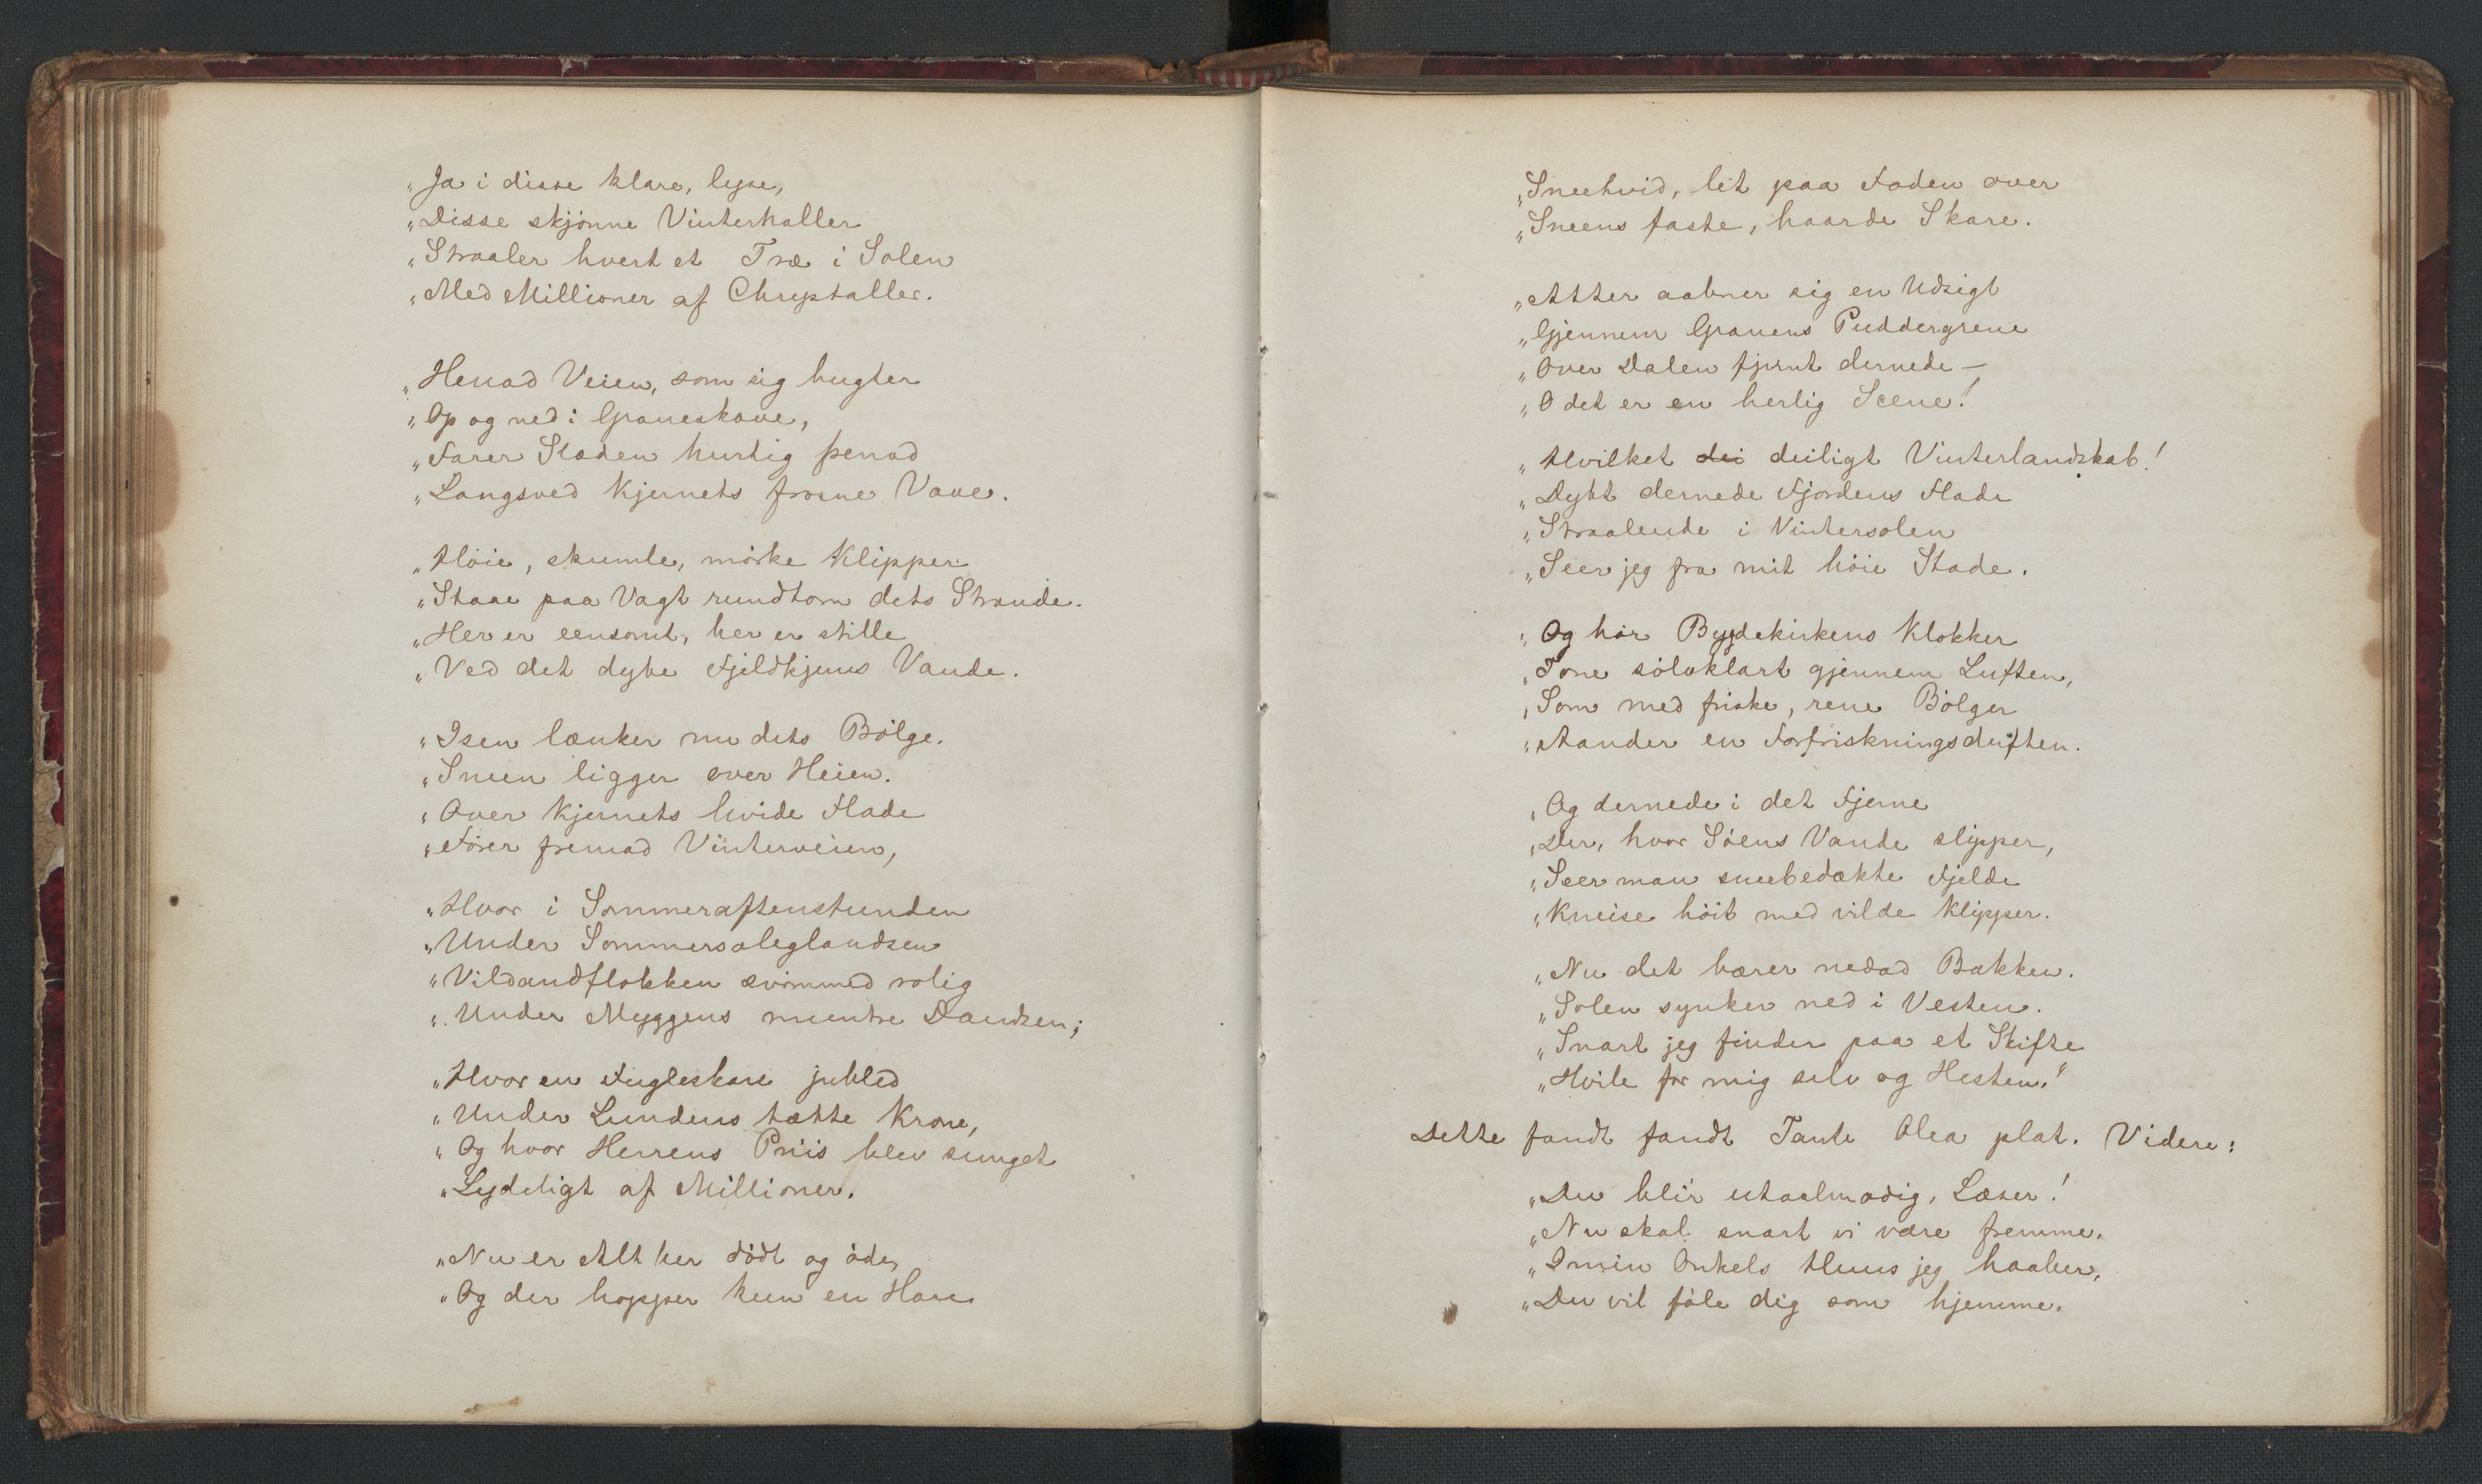 „Ja i disse klare, lyse,
„Disse skjønne Vinterhaller
„Straaler hvert et Træ i Solen
„Med Millioner af Chrystaller.
„Henad Veien, som sig bugter
„Op og ned i Graneskove,
„Farer Slæden hurtig henad
„Langsved Kjernets frosne Vove.
„Høie, skumle, mørke Klipper
„Staae paa Vagt rundtom dets Strande.
„Her er eensomt, her er stille
„Ved det dybe Fjeldkjerns Vande.
„Isen lænker nu dets Bølge.
„Sneen ligger over Heien.
„Over Kjernets hvide Flade
„Fører fremad Vinterveien,
„Hvor i Sommeraftenstunden
„Under Sommersolglandsen
„Vildandflokken svømmed rolig
„Under Myggens muntre Dandsen;
„Hvor en Fugleskare jubled
„Under Lundens tætte Krone,
„Og hvor Herrens Priis blev sunget
„Lydeligt af Millioner.
„Nu er Alt her dødt og øde,
„Og der hopper kun en Hare
„Sneehvid, let paa Foden over
„Sneens faste, haarde Skare.
„Atter aabner sig en Udsigt
„Gjennem Granens Puddergrene
„Over Dalen fjernt dernede —
„O det er en herlig Scene!
„Hvilket dei deiligt Vinterlandskab!
„Dybt dernede Fjordens Flade
„Straalende i Vintersolen
„Seer jeg fra mit høie Stade.
„Og hør Bygdekirkens Klokker
„Tone sølvklart gjennem Luften,
„Som med friske, rene Bølger
„Aander en Forfriskningsduften.
„Og dernede i det Fjerne
„Der, hvor Søens Vande slipper,
„Seer man sneebedækte Fjelde
„Kneise høit med vilde Klipper.
„Nu det bærer nedad Bakken.
„Solen synker ned i Vesten.
„Snart jeg finder paa et Skifte
„Hvile for mig selv og Hesten."
Dette fandt fandt Tante Olea plat. Videre:
„Du blir utaalmodig, Læser!
„Nu skal snart vi være fremme.
„I min Onkels Huus jeg haaber,
„Du vil føle dig som hjemme.